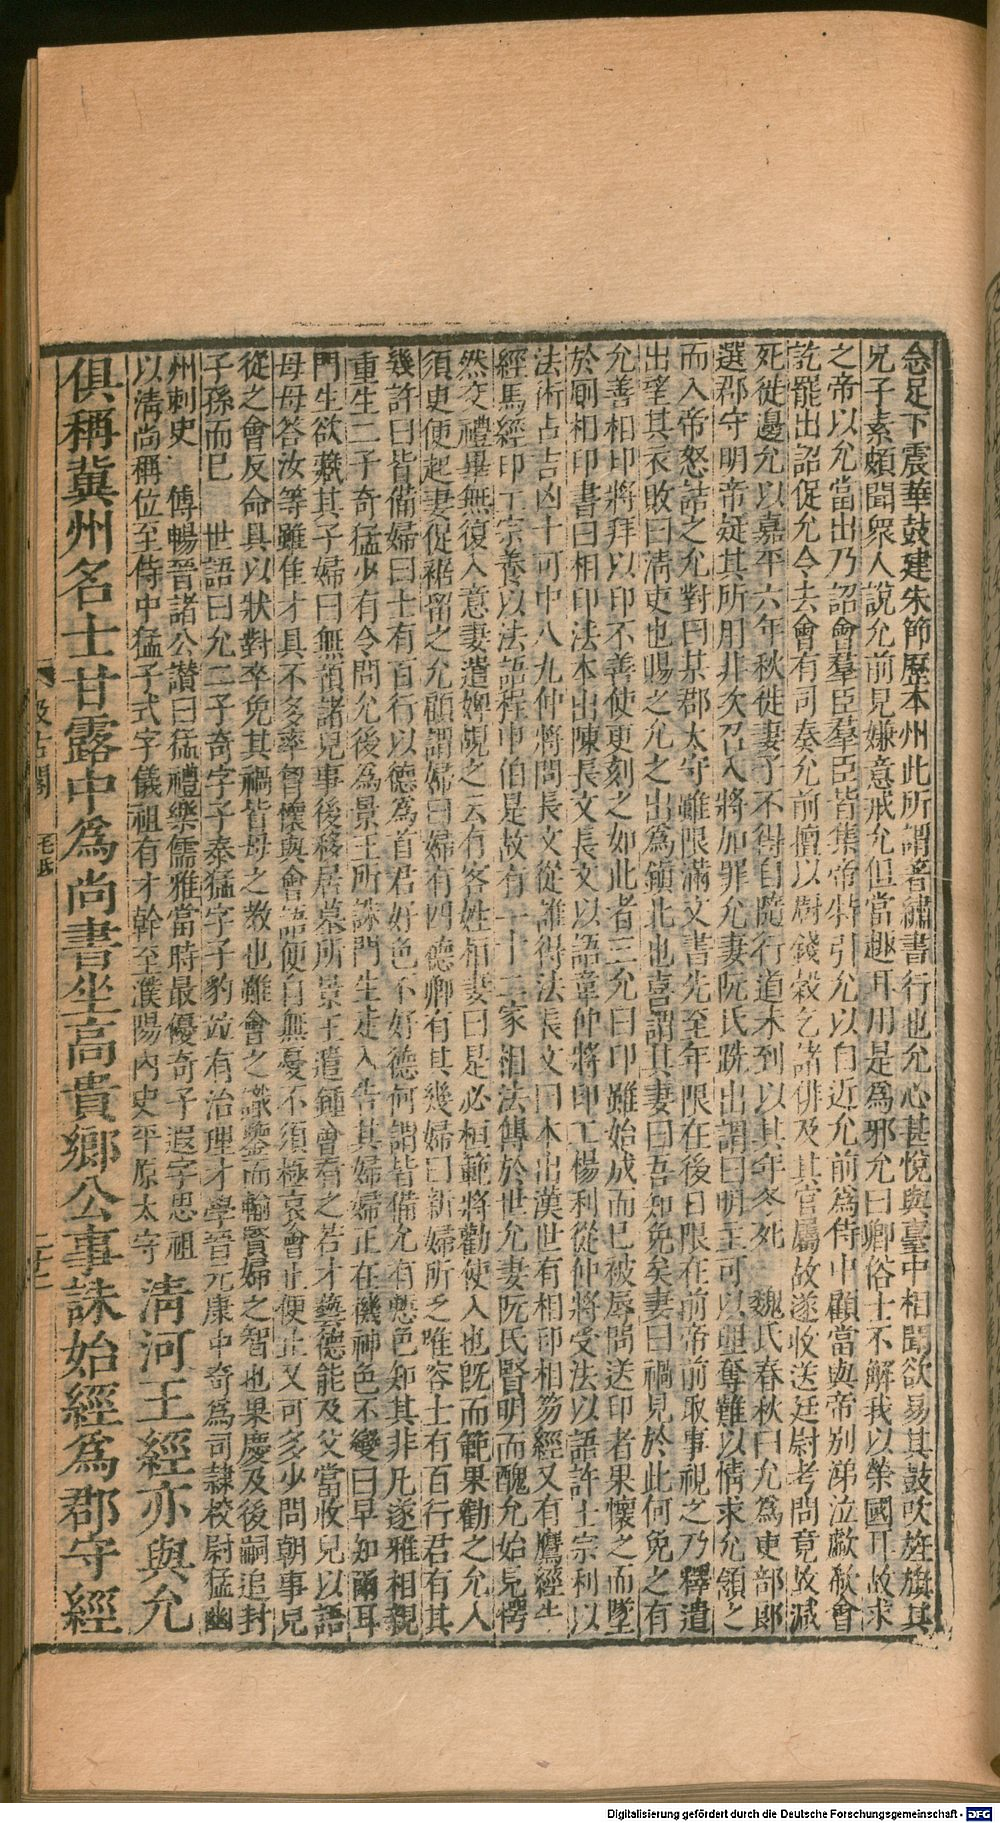 念足下震華鼓建朱節歷本州此所謂著繡晝行也允心甚悅與臺中相聞欲易其鼓吹旌旗其
兄子素頗聞衆人說允前見嫌意戒允但當趣耳用是爲邪允曰卿俗士不解我以榮國耳故求
之帝以允當出乃詔會羣臣羣臣皆集帝特引允以自近允前爲侍中顧當與帝别涕泣歔欷會
訖罷出詔促允令去會有司奏允前擅以厨錢穀乞諸俳及其官屬故遂收送廷尉考問竟故減
死徙邊允以嘉平六年秋徙妻子不得自隨行道未到以其年冬死　魏氏春秋曰允爲吏部郎
選郡守明帝疑其所用非次召入將加罪允妻阮氏跣出謂曰明主可以理奪難以情求允頷之
而入帝怒詰之允對曰某郡太守雖限滿文書先至年限在後日限在前帝前取事視之乃釋遣
出望其衣敗曰清吏也賜之允之出爲鎮北也喜謂其妻曰吾知免矣妻曰禍見於此何免之有
允善相印將拜以印不善使更刻之如此者三允曰印雖始成而已被辱問送印者果懷之而墜
於厠相印書曰相印法本出陳長文長文以語韋仲將印工楊利從仲將受法以語許士宗利以
法術占吉凶十可中八九仲將問長文從誰得法長文曰本出漢世有相印相笏經又有鷹經牛
經馬經印工宗養以法語程申伯是故有一十二家相法傳於世允妻阮氏賢明而醜允始見愕
然交禮畢無復入意妻遣婢覘之云有客姓桓妻曰是必桓範將勸使入也旣而範果勸之允入
須臾便起妻促裾留之允顧謂婦曰婦有四德卿有其幾婦曰新婦所乏唯容士有百行君有其
幾許曰皆備婦曰士有百行以德爲首君好色不好德何謂皆備允有慙色知其非凡遂雅相親
重生二子奇猛少有令問允後爲景王所誅門生走入告其婦婦正在機神色不變曰早知爾耳
門生欲藏其子婦曰無預諸兒事後移居墓所景王遣鍾會看之若才藝德能及父當收兒以語
母母答汝等雖佳才具不多率胷懷與會語便自無憂不須極哀會止便止又可多少問朝事兒
從之會反命具以狀對卒免其禍皆母之教也雖會之識鑒而輸賢婦之智也果慶及後嗣追封
子孫而已　世語曰允二子奇字子泰猛字子豹竝有治理才學晉元康中奇爲司隸校尉猛幽
州刺史　傅暢晉諸公讚曰猛禮樂儒雅當時最優奇子遐字思祖
以清尚稱位至侍中猛子式字儀祖有才幹至濮陽內史平原太守
清河王經亦與允
俱稱冀州名士甘露中爲尚書坐高貴鄉公事誅始經爲郡守經
汲古閣 毛氏
Digitalisierung gefördert durch die Deutsche Forschungsgemeinschaft - DFG